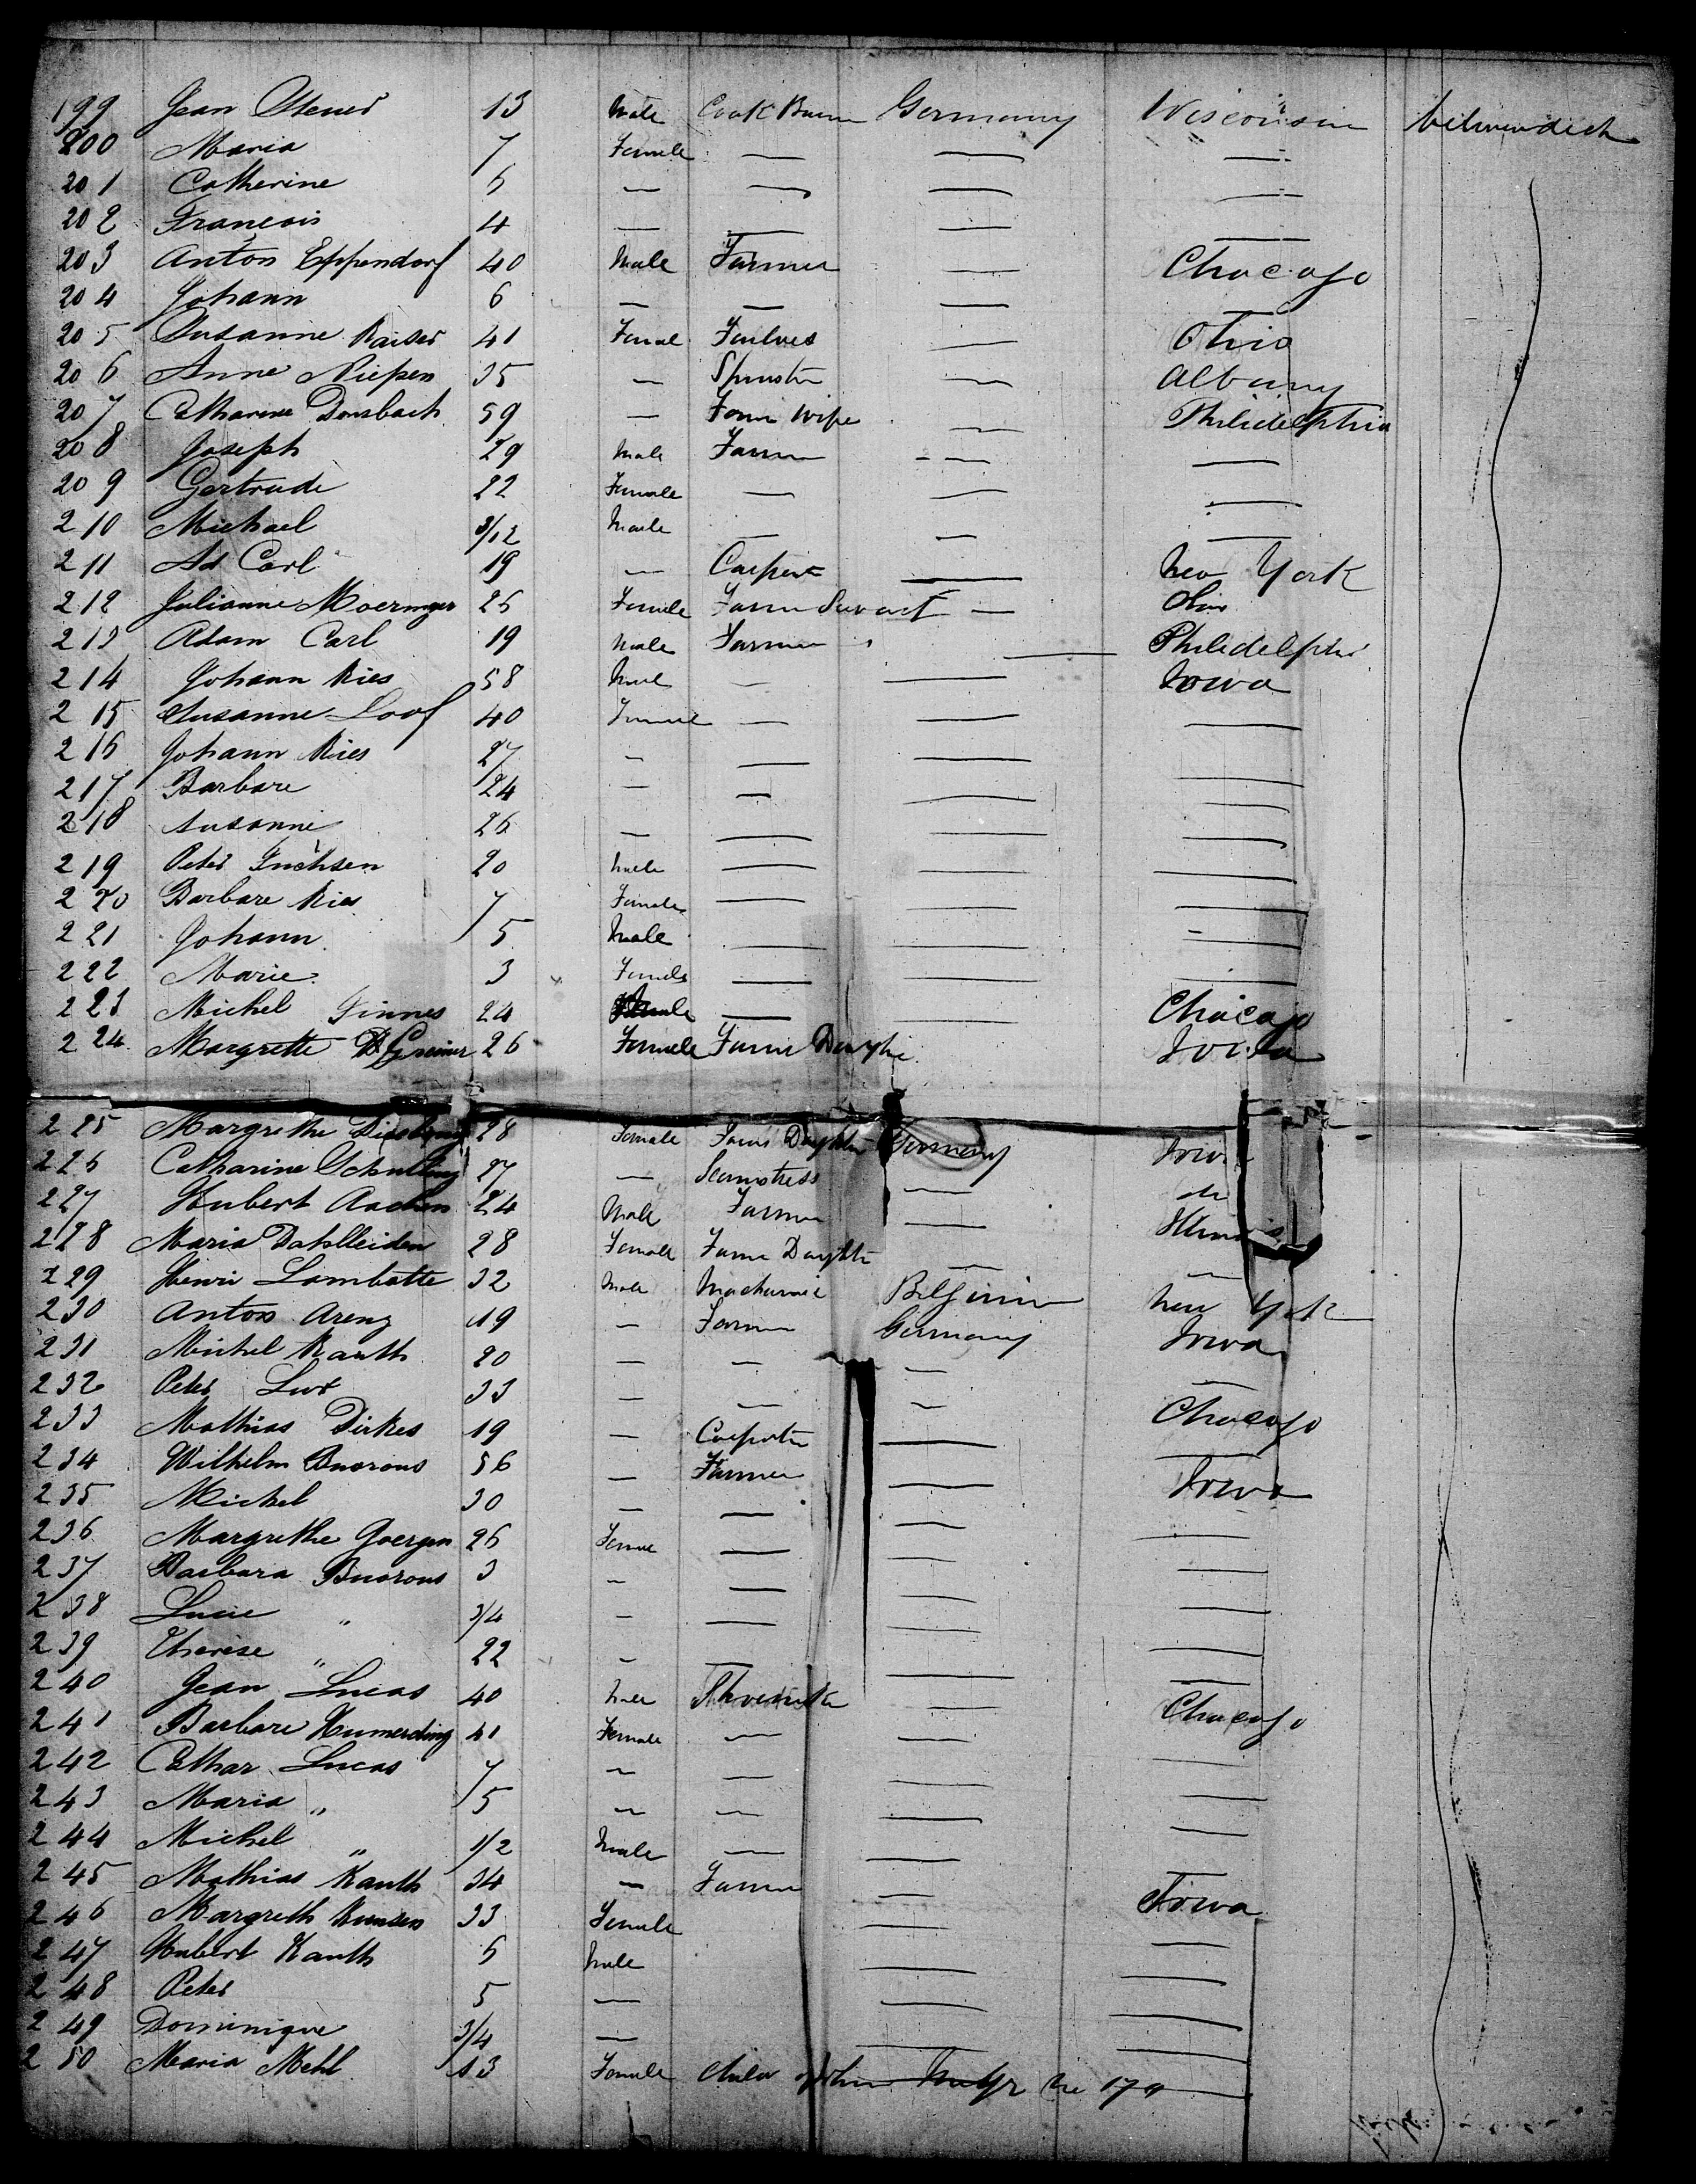 199 Jean Steuer 13 Male Germany Wisconsin
200 Maria 7 Female — — —
201 Catherine 5 — — — —
202 François 4 — — — —
203 Anton Eppendorf 40 Male Farmer — Chacago
204 Johann 6 — — — —
205 Susanne Kaiser 41 Femal — Ohio
206 Anne Niepen 35 — Spinster — Albany
207 Catharina Donsbach 59 — Farm wife — Philidelphia
208 Joseph 29 Male Farmer — —
209 Gertrude 22 Female — — —
210 Michael 3/12 Male — — —
211 Ad Carl 19 — Carpent — New York
212 Julianne Moeringer 25 Female Farm Servant — Ohio
213 Adam Carl 19 Male Farmer — Philidelphia
214 Johann Ries 58 Male — — Iowa
215 Susanne Loof 40 Female — — —
216 Johann Ries 27 — — — —
217 Barbare 24 — — — —
218 Susanne 26 — — — —
219 Peter 20 Male — — —
220 Barbare Ries 7 Female — — —
221 Johann 5 Male — — —
222 Marie 3 Female — — —
223 Michel Finnes 24 — — Chacago
224 Margrette Greiner 26 Female Farm Daughte Iowa
225 Margrethe 28 Female Farm Daughter Germany Iowa
226 Catharine Schulling 27 — Seamstress — do
227 Hubert Aachen 24 Male Farmer — Illinois
228 Maria Dahlleiden 28 Female Farm Daughte — —
229 Henri Lambotte 32 Male Machanic Belgium New York
230 Anton Areng 19 — Farmer Germany Iowa
231 Michel Kauth 20 — — — —
232 Peter 33 — — — Chacago
233 Mathias Dirkes 19 — Carpenter — —
234 Wilhelm Buorous 56 — Farmer — Iowa
235 Michel 30 — — —
236 Margrethe Goergen 26 Female — — —
237 Barbara Buorous 3 — — — —
238 Lucie " 3/4 — — — —
239 Therèse " 22 — — — —
240 Jean Lucas 40 Male — Chacago
241 Barbare Humerding 41 Female — —
242 Cathar Lucas 7 — — — —
243 Maria " 5 — — — —
244 Michel " 1/2 Male — — —
245 Mathias Kauth 34 — Farmer — Iowa
246 Margreth 33 Female — —
247 Hubert Kauth 5 Male — —
248 Peter 5 — — —
249 Dominique 3/4 — — —
250 Maria Mehl 13 Female child of John